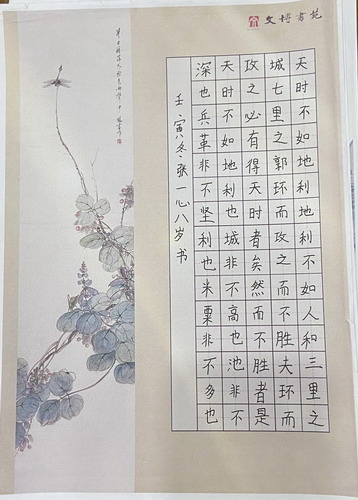 文博書苑
天时不如地利地利不如人和三里之
城七里之郭环而攻之而不胜夫环而
攻之必有得天时者矣然而不胜者是
天时不如地利也城非不高也池非不
深也兵革非不坚利也米粟非不多也
壬寅冬张一心八岁书